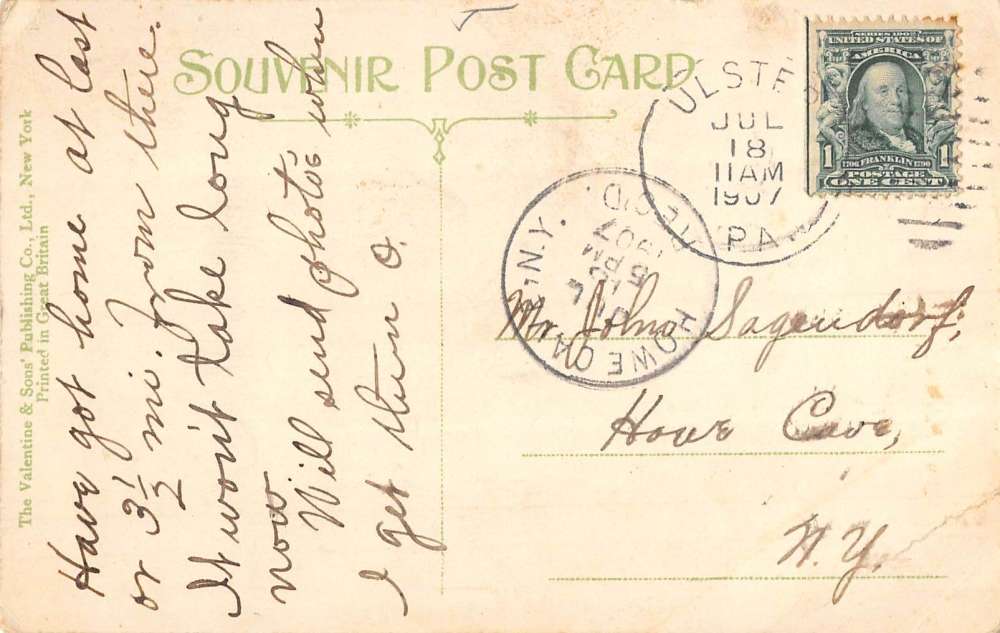 SOUVENIR POST CARD
The Valentine & Sons' Publishing Co., Ltd., New York
Printed in Great Britain
Have got home at last
or 3½ mi. from there.
It won't take long
now
Will send photos when
I get them O.
ULSTER
JUL
18
11AM
1907
PA.
HOWE CAVE
N.Y.
REC'D.
5 PM
1907
SERIES 1902
UNITED STATES OF
AMERICA
1 1
1706 FRANKLIN 1790
POSTAGE
ONE CENT
Mr. John Sagendorf,
Howe Cave,
N.Y.